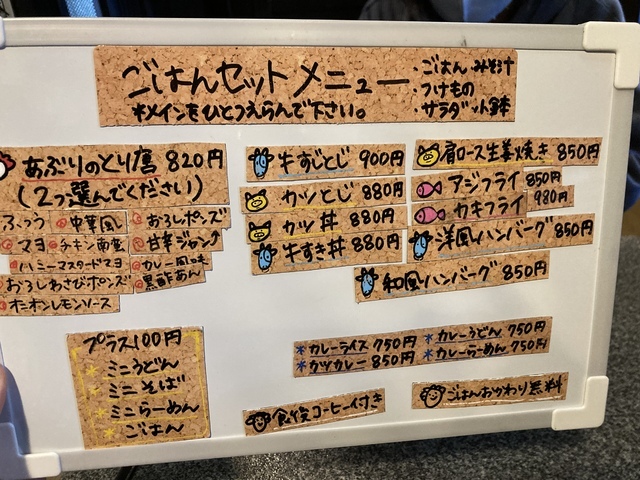 ごはんセットメニュー
・ごはん・みそ汁
・つけもの
・サラダ・小鉢
※メインをひとつえらんで下さい。
あぶりのとり唐 820円
(2つ選んでください)
ふつう
中華風
おろしポンズ
マヨ
チキン南蛮
甘辛ジャン
ハニーマスタードマヨ
カレー風味
おろしわさびポンズ
黒酢あん
オニオンレモンソース
牛すじとじ 900円
カツとじ 880円
カツ丼 880円
牛すき丼 880円
肩ロース生姜焼き 850円
アジフライ 850円
カキフライ 980円
洋風ハンバーグ 850円
和風ハンバーグ 850円
プラス100円
ミニうどん
ミニそば
ミニらーめん
ごはん
*カレーライス 750円
*カレーうどん 750円
*カツカレー 850円
*カレーらーめん 750円
食後コーヒー付き
ごはんおかわり無料